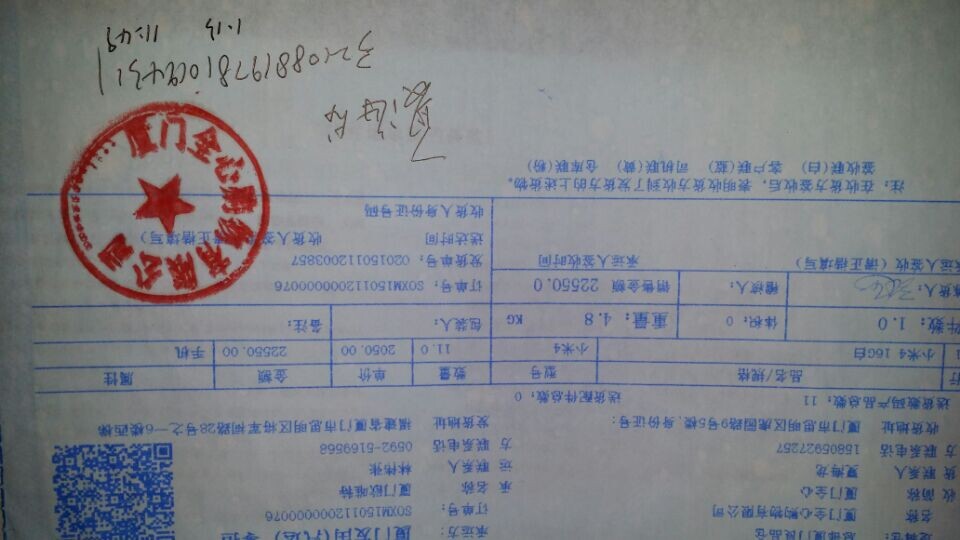 厦门友田(代运) 零担
承运方:
订单号: SOXM1501120000000076
名称 厦门全心购物有限公司
收 简称 厦门全心
承 名称 厦门欧唯特
货 联系人 夏海龙
运 联系人 林伟张
方 联系电话 15805927257
方 联系电话 0592-5169568
收货地址 厦门市思明区虎园路9号5楼,身份证号:
发货地址 福建省厦门市思明区将军祠路28号之一6楼西梯
送货数码产品总数: 11 送货配件总数: 0
行 品名/规格 型号 数量 单价 金额 属性
1 小米4 16G白 小米4 11.0 2050.00 22550.00 手机
件数: 1.0 体积: 0 重量: 4.8 KG 包装人: 备注:
稽核人: 销售金额 22550.0 订单号: SOXM1501120000000076
发货单号: 0201501120003857
承运人签收人(请正楷填写) 承运人签收时间
送达时间 收货人签收人(请正楷填写)
收货人身份证号码
注: 在收货方签收后,表明收货方收到了发货方的上述货物。
签收联(白) 客户联(蓝) 司机联(黄) 仓库联(粉)
厦门全心购物有限公司
夏海龙
1.13 11:49